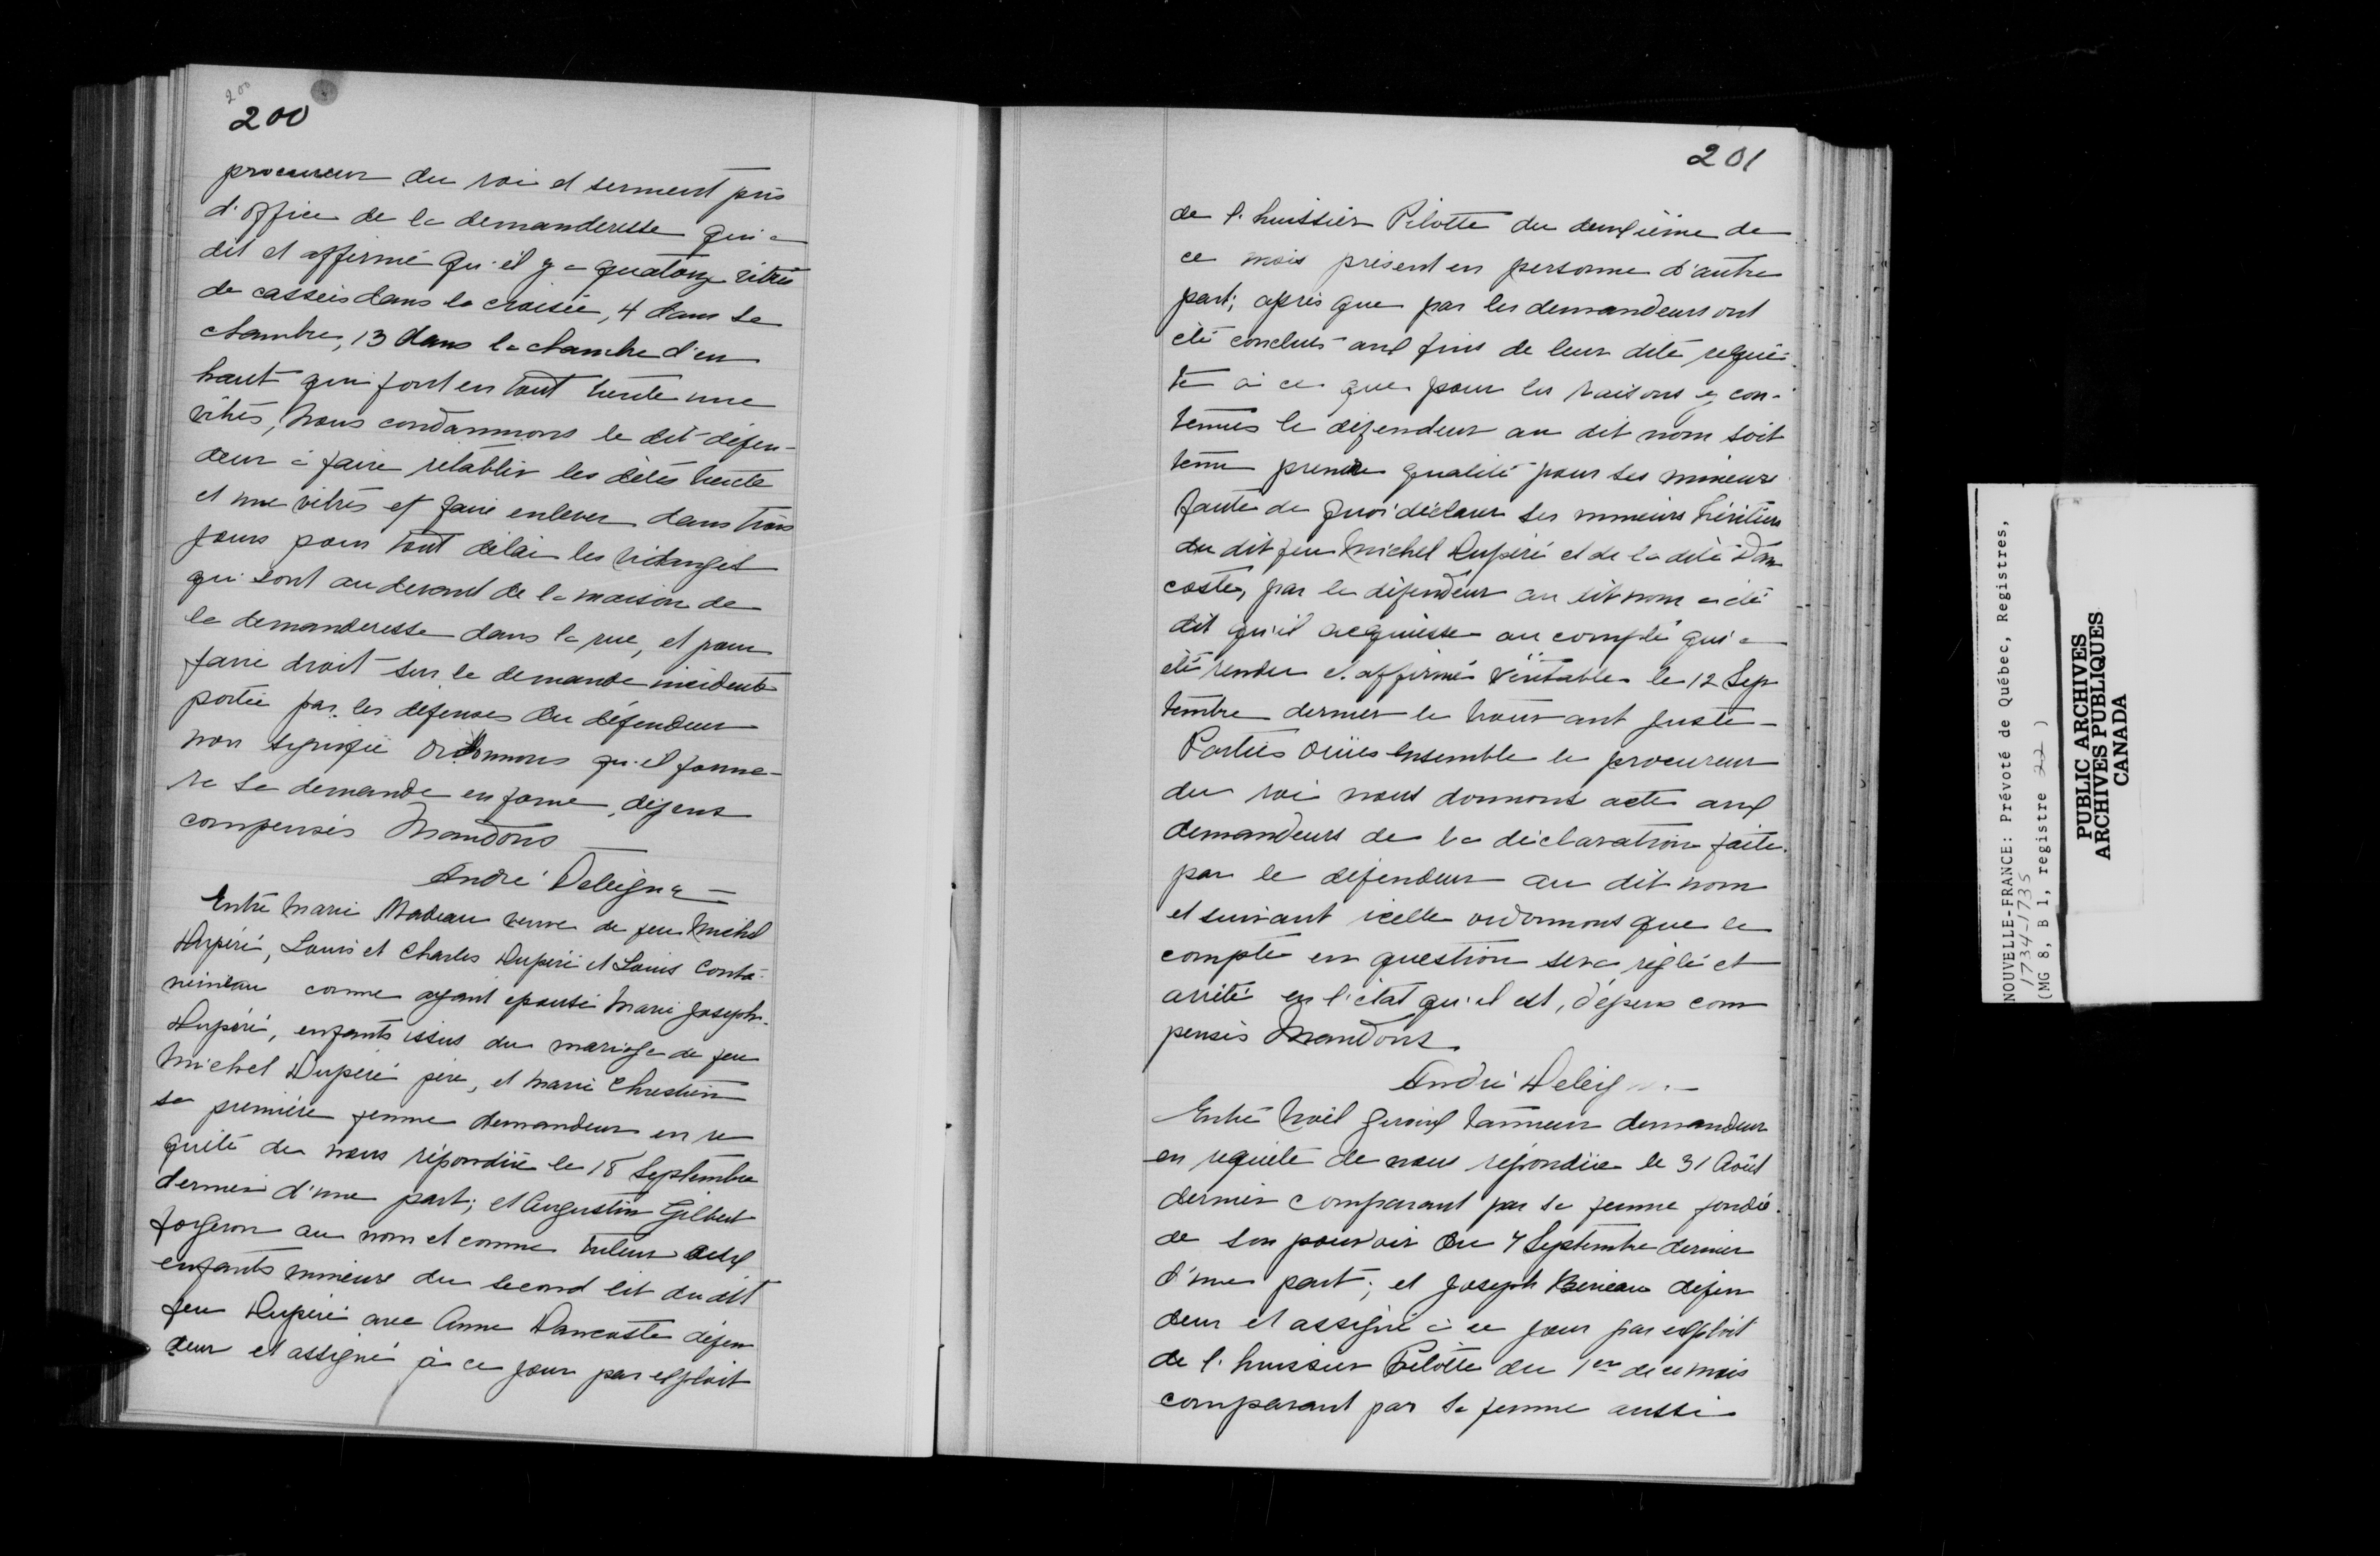 200
200
procureur du roi et serment pris
d'office de la demanderesse qui a
dit et affirmé qu'il y a quatorze vitres
de casseis dans la croisée, 4 dans sa
chambre, 13 dans la chambre d'en
haut qui font en tout trente une
vitres, Nous condamnons le dit défen-
deur à faire rétablir les dites trente
et une vitres et faire enlever dans trois
jours pour tout délai les vidanges
qui sont au devant de la maison de
la demanderesse dans la rue, et pour
faire droit sur la demande incidente
portée par les défenses du défendeur
non signifié ordonnons qu'il forme-
ra sa demande en forme, dépens
compensés Mandons
André Deleigne
Entre Marie Nadeau veuve de feu Michel
Dupéré, Louis et Charles Dupéré et Louis Conta-
mineau comme ayant épousé Marie Joseph
Dupéré, enfants issus du mariage de feu
Michel Dupéré père, et Marie Chrestien
sa première femme demandeur en re
quête de nous répondüe le 18 Septembre
dernier d'une part; et Augustin Gilbert
forgeron au nom et comme tuteur aux
enfants mineurs du second lit du dit
feu Dupéré avec Anne Dancoste défen
deur et assigné à ce jour par exploit
201
de l'huissier Pilotte du deuxième de
ce mois présent en personne d'autre
part; après que par les demandeurs ont
été conclus aux fins de leur dite requê-
te à ce que pour les raisons y con-
tenues le défendeur au dit nom soit
tenu prendre qualité pour ses mineurs
faute de quoi déclarer ses mineurs héritiers
du dit feu Michel Dupéré et de la dite Dan
coste, par le défendeur au dit nom a été
dit qu'il acquiesse au compte qui a
été rendu et affirmé véritable le 12 Sep
tembre dernier le trouvant juste -
Parties ouïes ensemble le procureur
du roi nous donnons acte aux
demandeurs de la déclaration faite
par le défendeur au dit nom
et suivant icelle ordonnons que le
compte en question sera réglé et
arrêté en l'état qu'il est, dépens com
pensés Mandons
André Deleig
Entre Noël Giroux tanneur demandeur
en requête de nous répondüe le 31 Août
dernier comparant par sa femme fondée
de son pouvoir du 4 Septembre dernier
d'une part; et Joseph défen
deur et assigné à ce jour par exploit
de l'huissier Pilotte du 1er de ce mois
comparant par sa femme aussi
NOUVELLE-FRANCE: Prévoté de Québec, Registres,
1734-1735
(MG 8, B 1, registre 22 )
PUBLIC ARCHIVES
ARCHIVES PUBLIQUES
CANADA